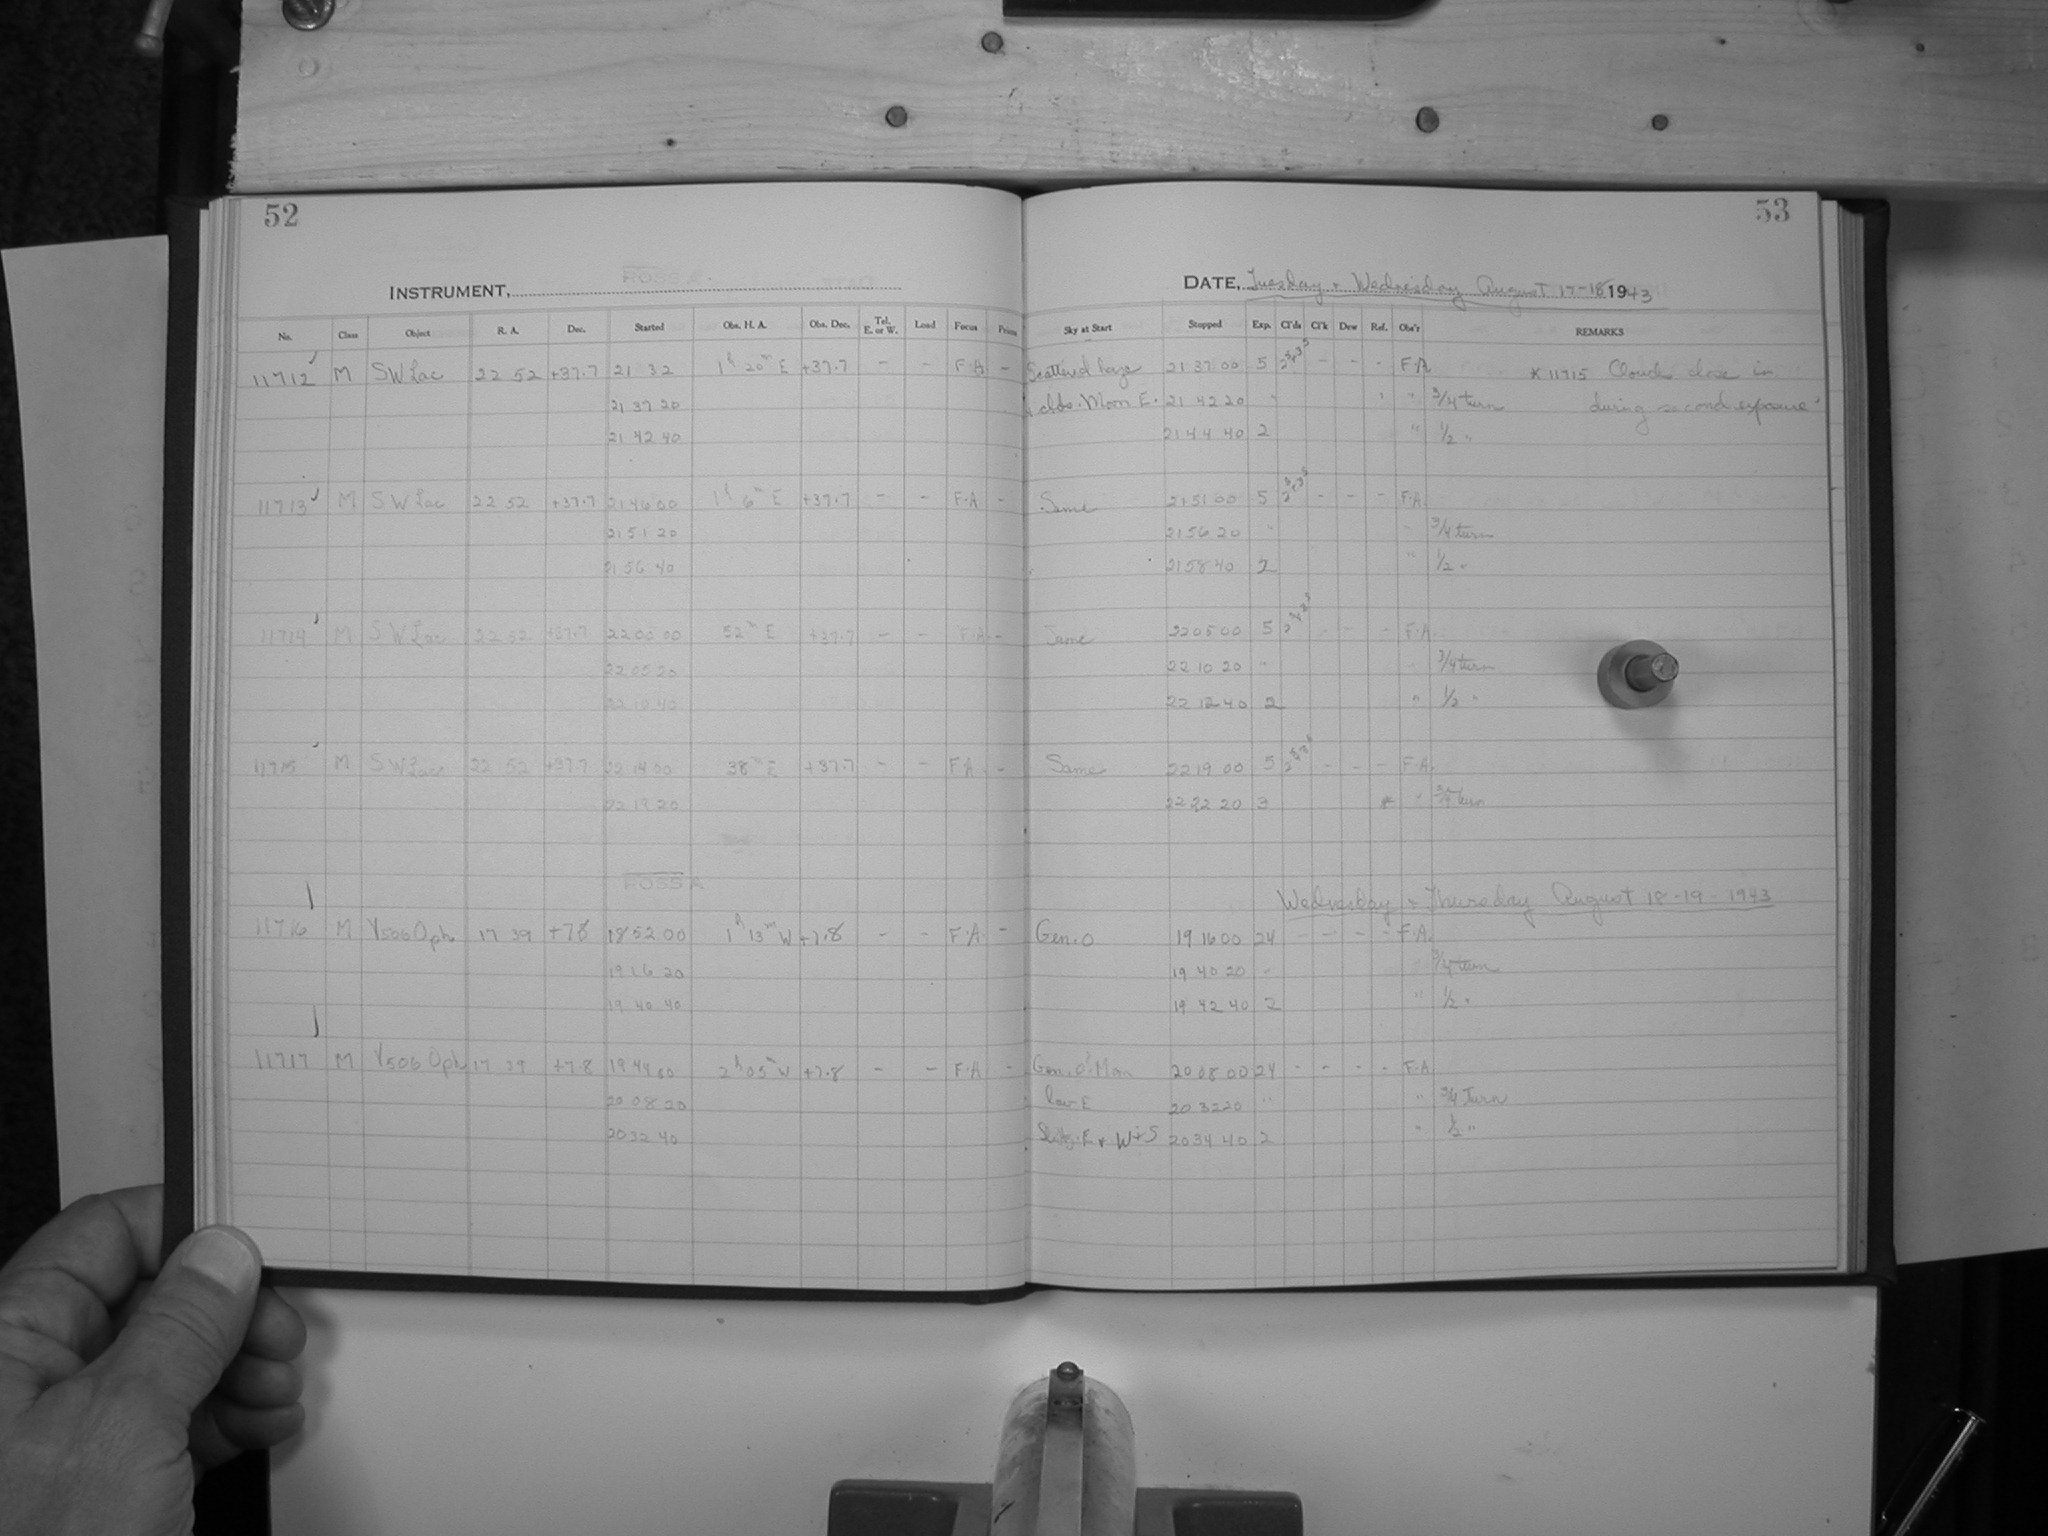 52
53
INSTRUMENT, ROSS A.
DATE, Tuesday + Wednesday August 17-18 1943
No. Class Object R. A. Dec. Started Obs. H. A. Obs. Dec. Tel. E. or W. Load Focus Prism Sky at Start Stopped Exp. Cl'ds Cl'k Dew Ref. Obs'r REMARKS
11712 M SW Lac 22 52 +37.7 21 32 1h 20m E +37.7 - - F.A. - Scattered haze 21 37 00 5 - - - F.A. * 11715 Clouds close in
21 37 20 + clds. Moon E. 21 42 20 " " 3/4 turn during second exposure
21 42 40 21 44 40 2 " 1/2 "
11713 M SW Lac 22 52 +37.7 21 46 00 1h 6m E +37.7 - - F.A - Same 21 51 00 5 - - - F.A
21 51 20 21 56 20 " " 3/4 turn
21 56 40 21 58 40 2 " 1/2 "
11714 M SW Lac 22 52 +37.7 22 00 00 52m E +37.7 - - F.A - Same 22 05 00 5 - - - F.A.
22 05 20 22 10 20 " " 3/4 turn
22 10 40 22 12 40 2 " 1/2 "
11715 M SW Lac 22 52 +37.7 22 14 00 38m E +37.7 - - F.A - Same 22 19 00 5 - - - F.A.
22 19 20 22 22 20 3 * " 3/4 turn
ROSS A Wednesday + Thursday August 18-19-1943
11716 M V506 Oph 17 39 +7.8 18 52 00 1h 13m W +7.8 - - F.A. - Gen. 0 19 16 00 24 - - - - F.A.
19 16 20 19 40 20 " " 3/4 turn
19 40 40 19 42 40 2 " 1/2 "
11717 M V506 Oph 17 39 +7.8 19 44 00 2h 05m W +7.8 - - F.A - Gen. 0 Moon 20 08 00 24 - - - - F.A
20 08 20 low E 20 32 20 " " 3/4 turn
20 32 40 E + W + S 20 34 40 2 " 1/2 "